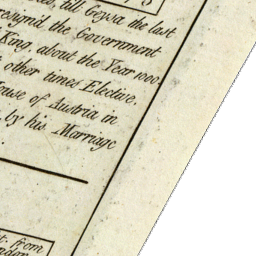 till Geysa the last
resign'd the Government
King, about the Year 1000
other times Elective.
House of Austria in
by his Marriage
t. from